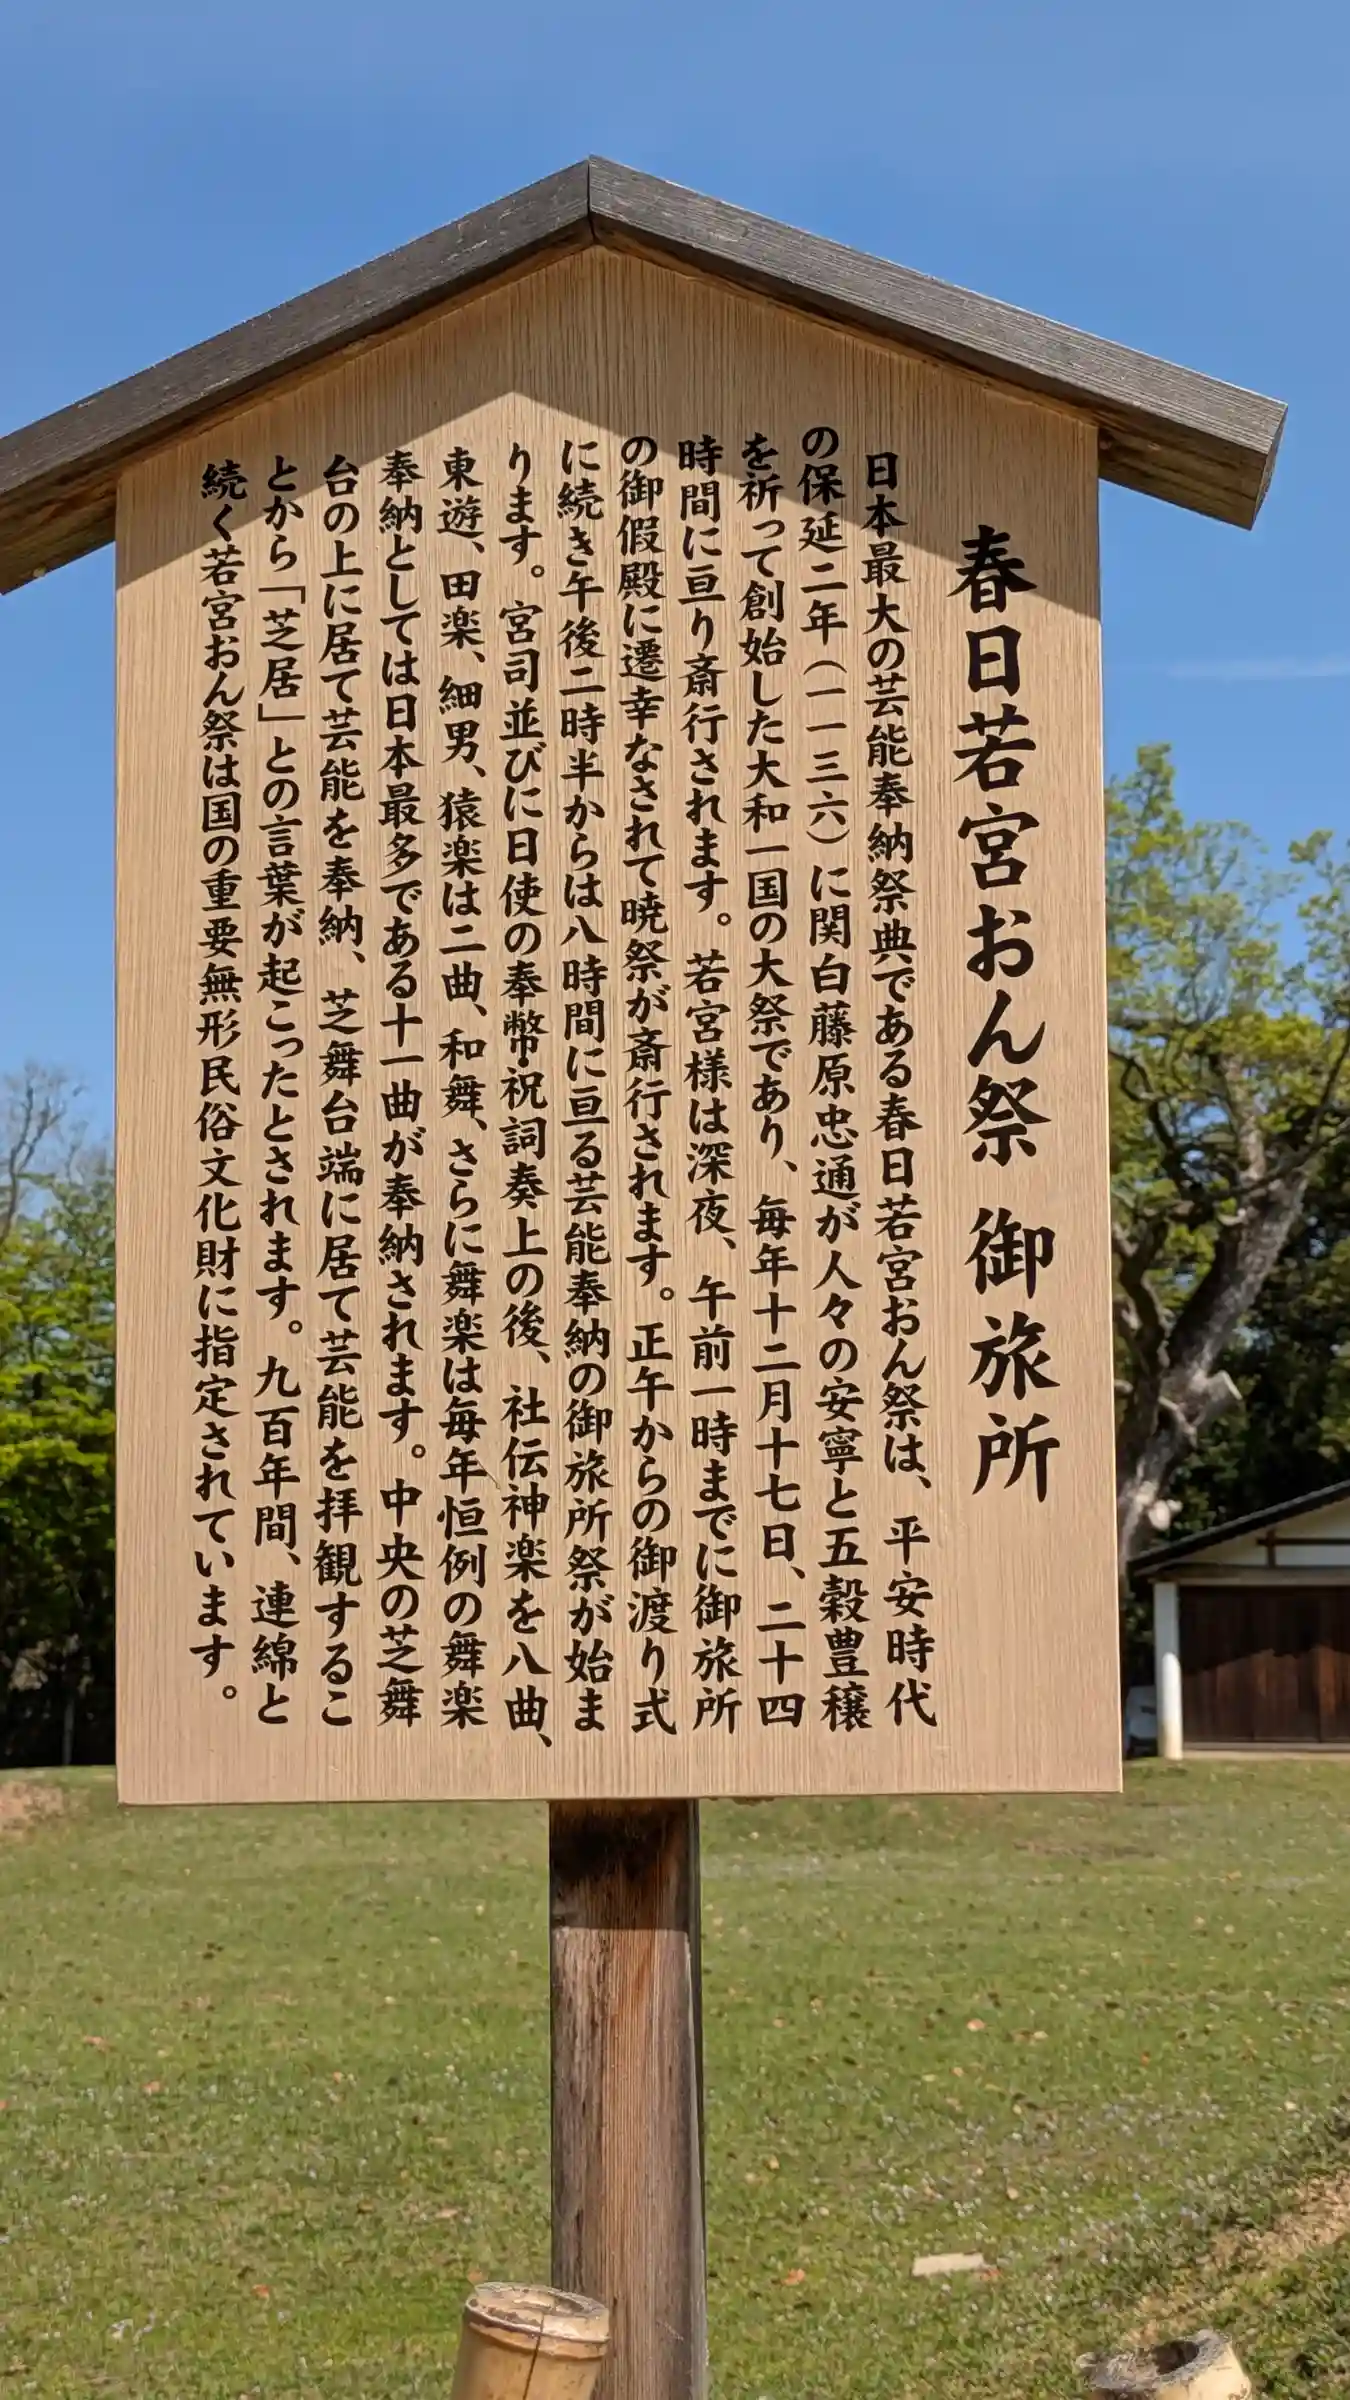 春日若宮おん祭 御旅所
日本最大の芸能奉納祭典である春日若宮おん祭は、平安時代
の保延二年（一一三六）に関白藤原忠通が人々の安寧と五穀豊穣
を祈って創始した大和一国の大祭であり、毎年十二月十七日、二十四
時間に亘り斎行されます。若宮様は深夜、午前一時までに御旅所
の御假殿に遷幸なされて暁祭が斎行されます。正午からの御渡り式
に続き午後二時半からは八時間に亘る芸能奉納の御旅所祭が始ま
ります。宮司並びに日使の奉幣・祝詞奏上の後、社伝神楽を八曲、
東遊、田楽、細男、猿楽は二曲、和舞、さらに舞楽は毎年恒例の舞楽
奉納としては日本最多である十一曲が奉納されます。中央の芝舞
台の上に居て芸能を奉納、芝舞台端に居て芸能を拝観するこ
とから「芝居」との言葉が起こったとされます。九百年間、連綿と
続く若宮おん祭は国の重要無形民俗文化財に指定されています。